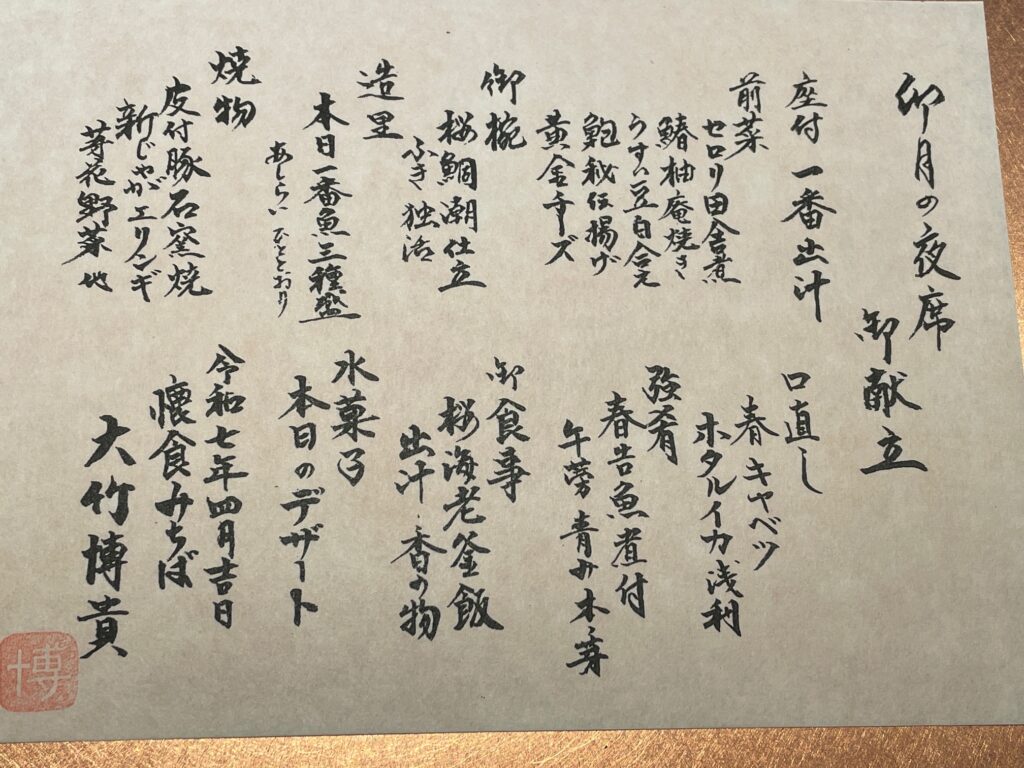 卯月の夜席
御献立
座付 一番出汁
前菜
セロリ田舎煮
鰆柚庵焼き
うすい豆白合え
鮑秘伝揚げ
黄金チーズ
御椀
桜鯛潮仕立
ふき 独活
造里
本日一番魚三種盛
あしらいひととおり
焼物
皮付豚石窯焼
新じゃが エリンギ
芽花野菜 他
口直し
春キャベツ
ホタルイカ 浅利
強肴
春告魚煮付
牛蒡 青み 木ノ芽
御食事
桜海老釜飯
出汁・香の物
水菓子
本日のデザート
令和七年四月吉日
懐食みちば
大竹博貴
博